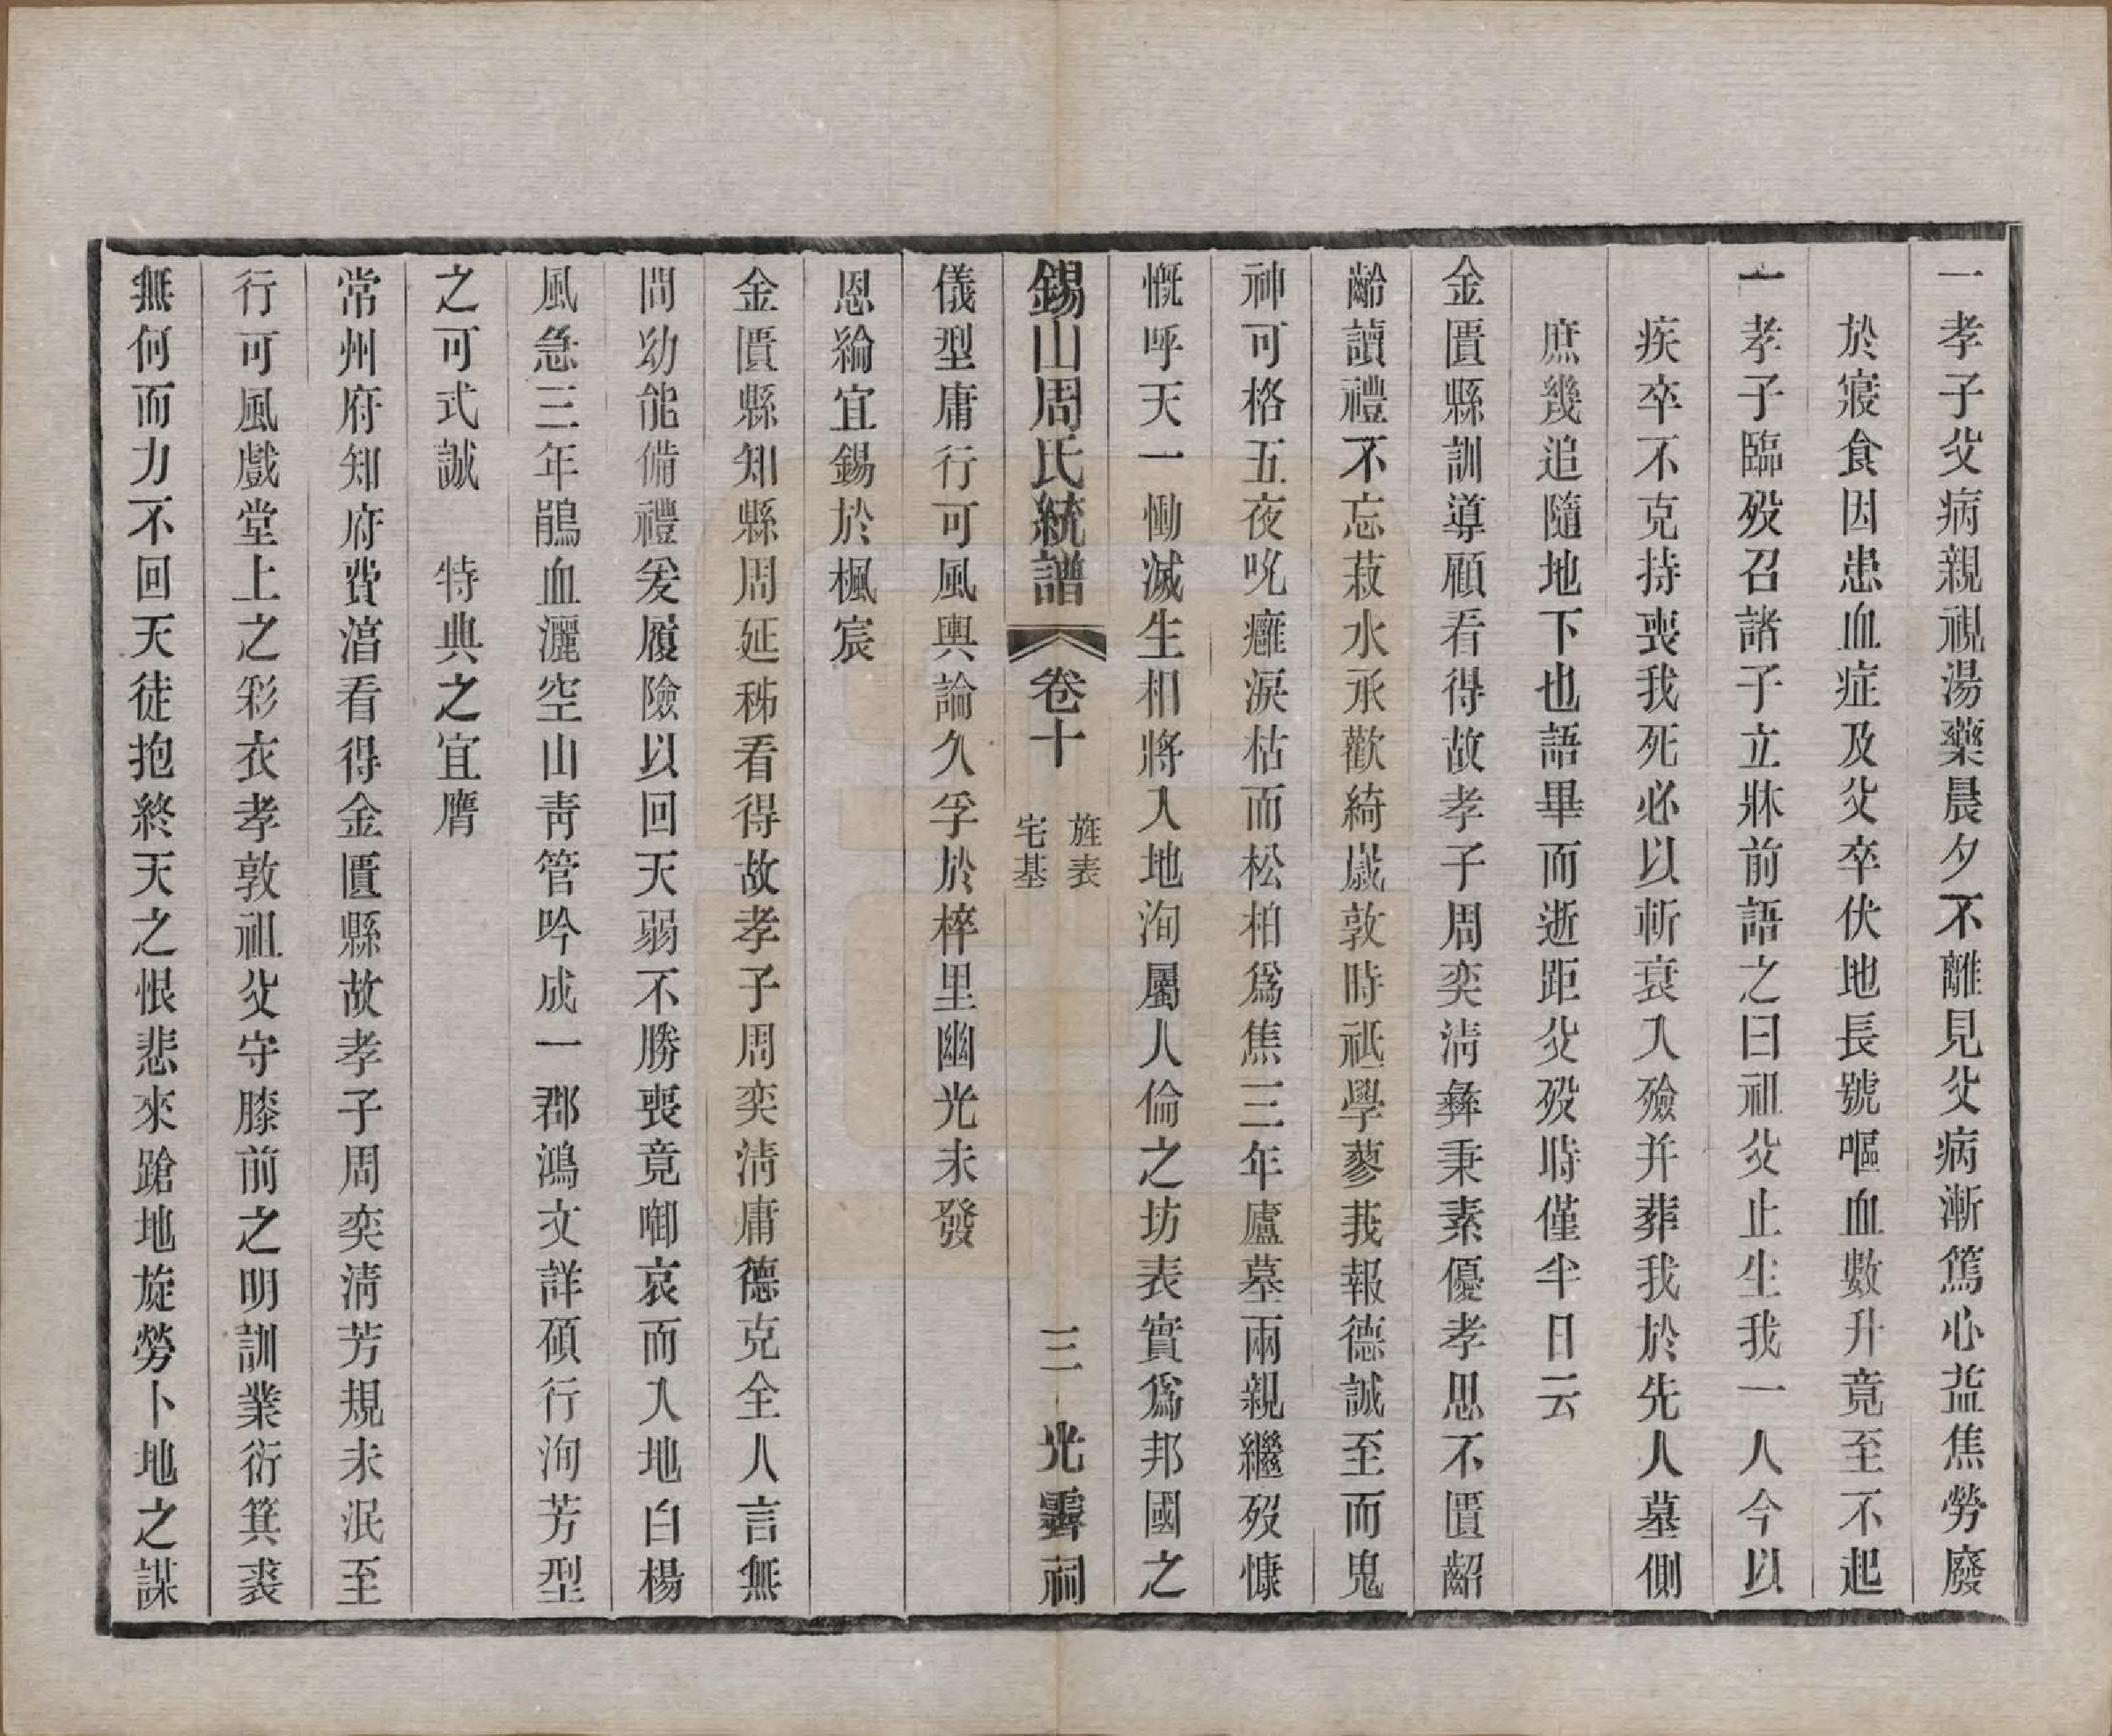 一孝子父病親視湯藥晨夕不離見父病漸篤心益焦勞廢
於寢食因患血症及父卒伏地長號嘔血數升竟至不起
一孝子臨歿召諸子立牀前語之曰祖父止生我一人今以
疾卒不克持喪我死必以斬衰入殮并葬我於先人墓側
庶幾追隨地下也語畢而逝距父歿時僅半日云
金匱縣訓導顧看得故孝子周奕淸彝秉素優孝思不匱齠
齡讀禮不忘菽水承歡綺歲敦時祗學蓼莪報德誠至而鬼
神可格五夜吮癰淚枯而松柏爲焦三年廬墓兩親繼歿慷
慨呼天一慟滅生相將入地洵屬人倫之坊表實爲邦國之
錫山周氏統譜 卷十 旌表 宅基 三 光霽祠
儀型庸行可風輿論久孚於梓里幽光未發
恩綸宜錫於楓宸
金匱縣知縣周延秭看得故孝子周奕淸庸德克全人言無
間幼能備禮爰履險以回天弱不勝喪竟啣哀而入地白楊
風急三年鵑血灑空山靑管吟成一郡鴻文詳碩行洵芳型
之可式誠　特典之宜膺
常州府知府費滀看得金匱縣故孝子周奕淸芳規未泯至
行可風戲堂上之彩衣孝敦祖父守膝前之明訓業衍箕裘
無何而力不回天徒抱終天之恨悲來蹌地旋勞卜地之謀